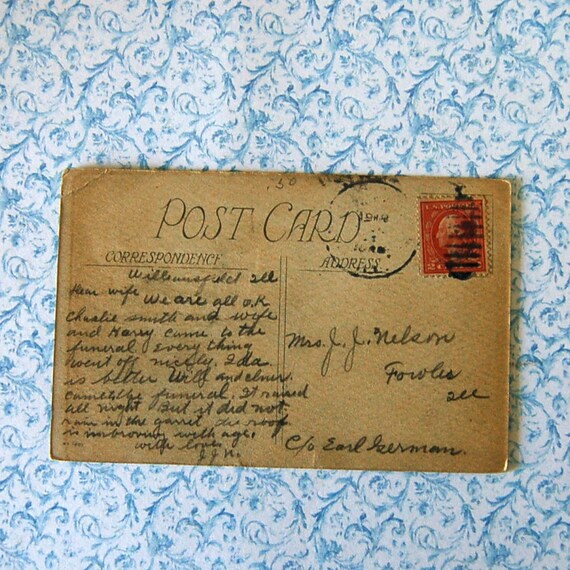 50
POST CARD
CORRESPONDENCE
ADDRESS
Williamsfield Ill
Dear wife We are all O.K
Charlie Smith and wife
and Harry came to the
funeral Every thing
went off nicely. Ida
is better Will and Elmer
came to the funeral. It rained
all night But it did not
rain in the garret. the roof
is improving with age.
with love
J.J.N.
Mrs. J. J. Nelson
Ill
C/o Earl German.